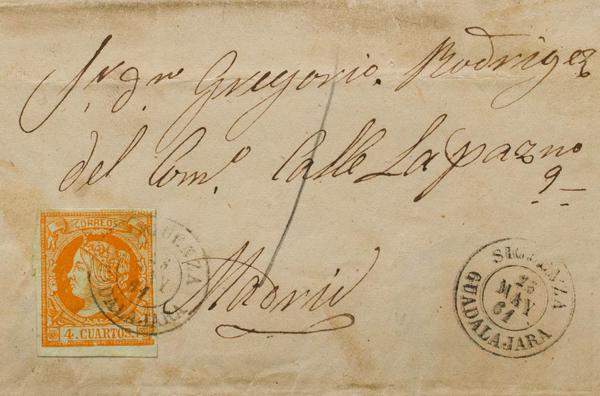 Sr. dn. Gregorio. Rodriguez
del Como. Calle La paz no
9
Madrid
CORREOS
4. CUARTOS.
SIGUENZA
25
MAY
61
GUADALAJARA
SIGUENZA
25
MAY
61
GUADALAJARA